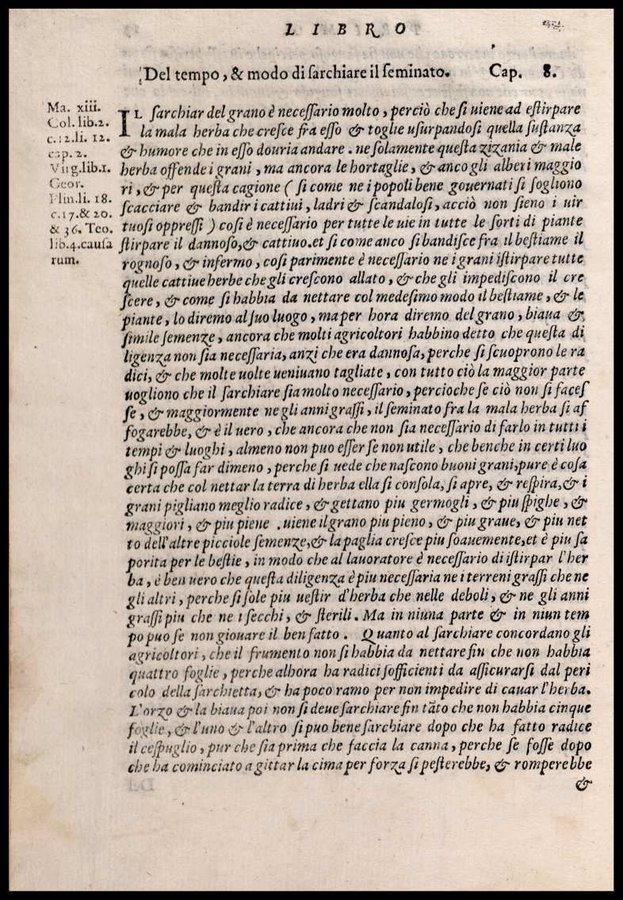 LIBRO
Del tempo, & modo di ſarchiare il ſeminato. Cap. 8.
Ma. xiii.
Col. lib. 2.
c. 12. li. 12.
cap. 2.
Virg. lib. 1.
Geor.
Plin. li. 18.
c. 17. & 20.
& 36. Teo.
lib. 4. cauſa
rum.
IL ſarchiar del grano è neceſſario molto, perciò che ſi uiene ad eſtirpare
la mala herba che creſce fra eſſo & toglie uſurpandoſi quella ſuſtanza
& humore che in eſſo douria andare. ne ſolamente queſta zizania & male
herba offende i grani, ma ancora le hortaglie, & anco gli alberi maggio
ri, & per queſta cagione ( ſi come ne i popoli bene gouernati ſi ſogliono
ſcacciare & bandir i cattiui, ladri & ſcandaloſi, acciò non ſieno i uir
tuoſi oppreſſi ) coſi è neceſſario per tutte le uie in tutte le ſorti di piante
ſtirpare il dannoſo, & cattiuo. et ſi come anco ſi bandiſce fra il beſtiame il
rognoſo, & infermo, coſi parimente è neceſſario ne i grani iſtirpare tutte
quelle cattiue herbe che gli creſcono allato, & che gli impediſcono il cre
ſcere, & come ſi habbia da nettare col medeſimo modo il beſtiame, & le
piante, lo diremo al ſuo luogo, ma per hora diremo del grano, biaua &
ſimile ſemenze, ancora che molti agricoltori habbino detto che queſta di
ligenza non ſia neceſſaria, anzi che era dannoſa, perche ſi ſcuoprono le ra
dici, & che molte uolte ueniuano tagliate, con tutto ciò la maggior parte
uogliono che il ſarchiare ſia molto neceſſario, percioche ſe ciò non ſi faceſ
ſe, & maggiormente ne gli anni graſſi, il ſeminato fra la mala herba ſi af
fogarebbe, & è il uero, che ancora che non ſia neceſſario di farlo in tutti i
tempi & luoghi, almeno non puo eſſer ſe non utile, che benche in certi luo
ghi ſi poſſa far dimeno, perche ſi uede che naſcono buoni grani, pure è coſa
certa che col nettar la terra di herba ella ſi conſola, ſi apre, & reſpira, & i
grani pigliano meglio radice, & gettano piu germogli, & piu ſpighe, &
maggiori, & piu piene. uiene il grano piu pieno, & piu graue, & piu net
to dell'altre picciole ſemenze, & la paglia creſce piu ſoauemente, et è piu ſa
porita per le beſtie, in modo che al lauoratore è neceſſario di iſtirpar l'her
ba, è ben uero che queſta diligenza è piu neceſſaria ne i terreni graſſi che ne
gli altri, perche ſi ſole piu ueſtir d'herba che nelle deboli, & ne gli anni
graſſi piu che ne i ſecchi, & ſterili. Ma in niuna parte & in niun tem
po puo ſe non giouare il ben fatto. Quanto al ſarchiare concordano gli
agricoltori, che il frumento non ſi habbia da nettare fin che non habbia
quattro foglie, perche alhora ha radici ſofficienti da aſſicurarſi dal peri
colo della ſarchietta, & ha poco ramo per non impedire di cauar l'herba.
L'orzo & la biaua poi non ſi deue ſarchiare fin tāto che non habbia cinque
foglie, & l'uno & l'altro ſi puo bene ſarchiare dopo che ha fatto radice
il ceſpuglio, pur che ſia prima che faccia la canna, perche ſe foſſe dopo
che ha cominciato a gittar la cima per forza ſi peſterebbe, & romperebbe
&